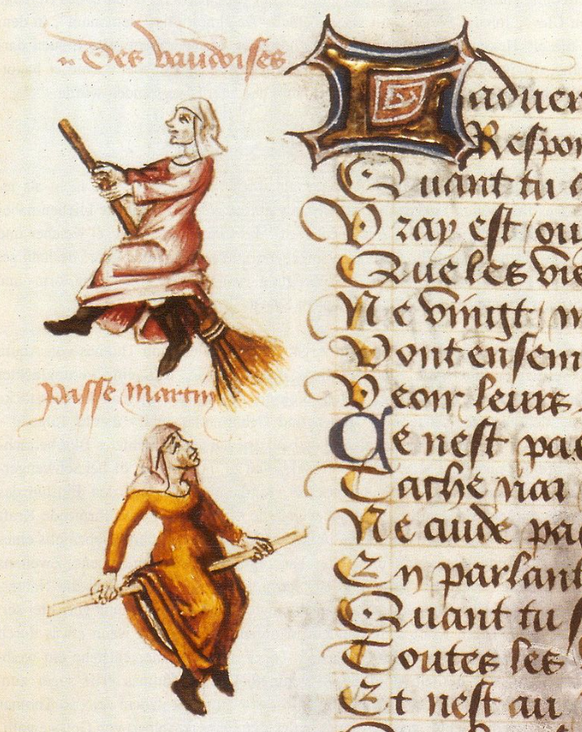 Des vaudoises
passe martin
Laduer
Respon
Quant tu
Vray est / ou
Que les vie
Ne vingt /
Vont ensem
Veoir leurs
Ce nest pas
Tache
Ne cuide pa
En parlant
Quant tu
Toutes les
Et nest au